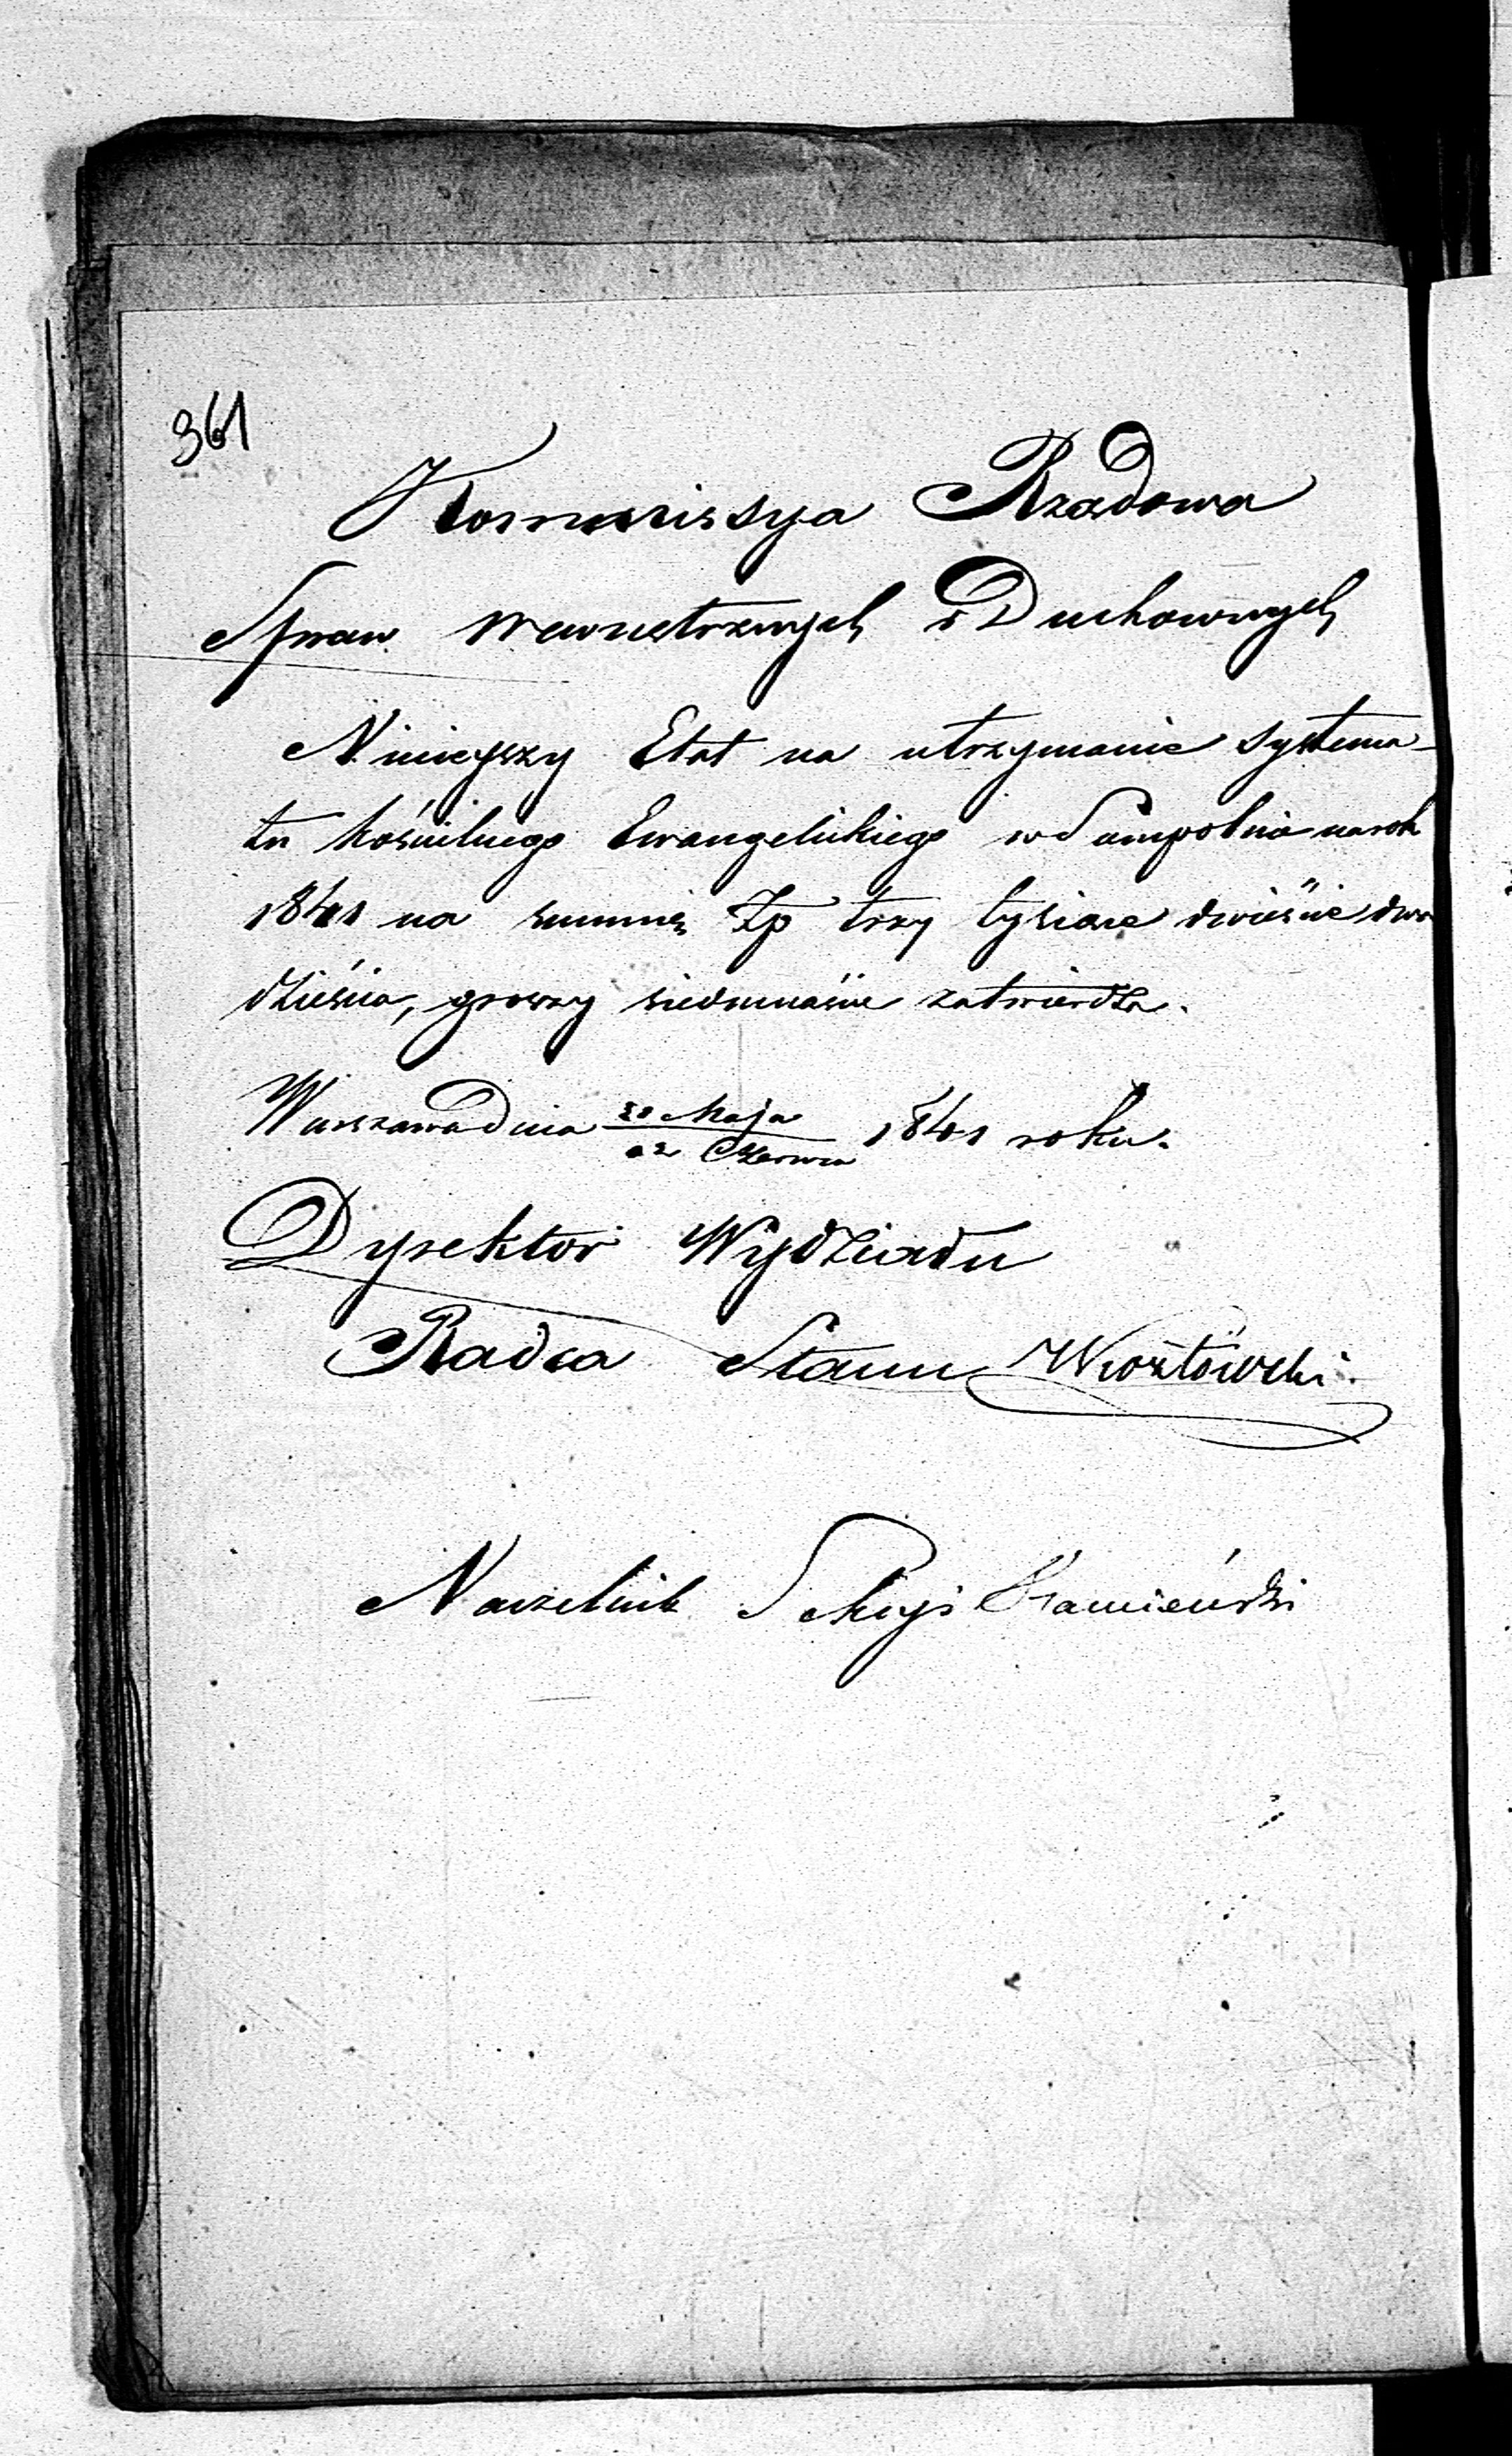 361
Kommissya Rządowa
Spraw Wewnetrznych i Duchownych
Ninieyszy Etat na utrzymanie systema-
tu kościelnego Ewangelickiego w Sompolnie na rok
1841 na summę Złp trzy tysiące dwieście dwa
dzieścia, groszy siedmnaście zatwierdza.
Warszawa Dnia 20 Maja
02 Czerwca 1841 roku.
Dyrektor Wydziału
Radca Stanu
Naczelnik Sekcyi Kamieński